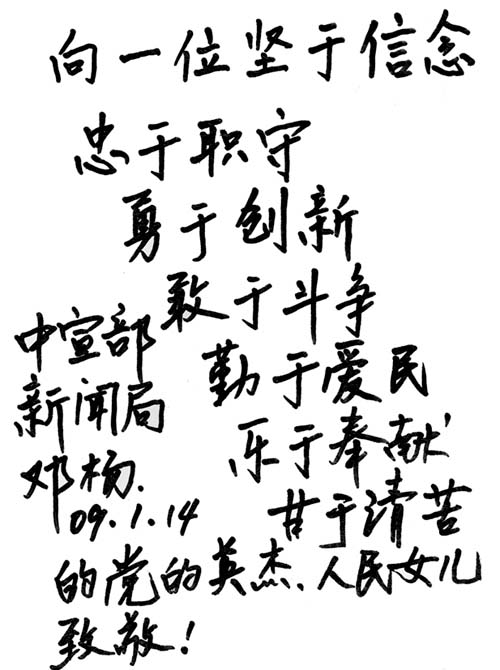 向一位坚于信念
忠于职守
勇于创新
敢于斗争
勤于爱民
乐于奉献
甘于清苦
的党的英杰、人民女儿
致敬！
中宣部
新闻局
邓杨.
09.1.14